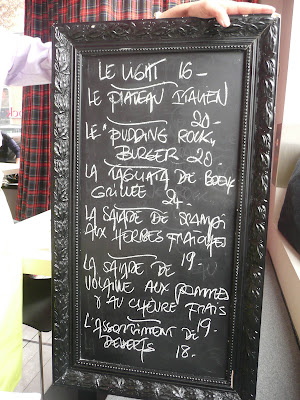 LE LIGHT 16_
LE PLATEAU ITALIEN
20_
LE "PUDDING ROCK"
BURGER 20_
LA TAGLIATA DE BOEUF
GRILLÉE 24_
LA SALADE DE SCAMPI
AUX HERBES FRAICHES
19_
LA SALADE DE
VOLAILLE AUX POMMES
& AU CHÈVRE FRAIS
19_
L'ASSORTIMENT DE
DESSERTS 18_